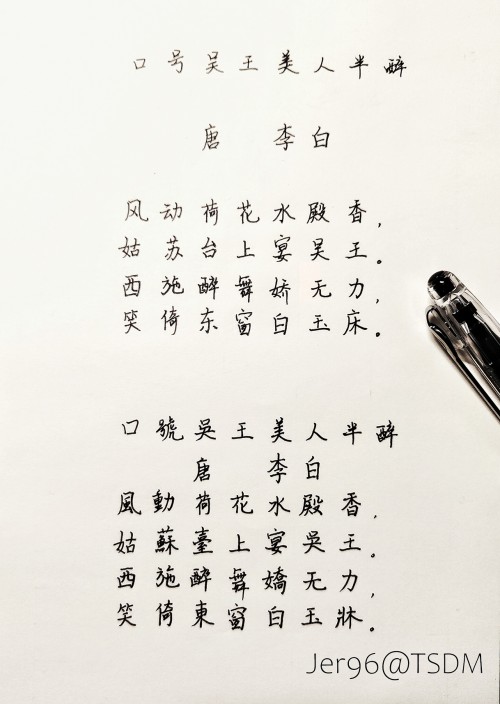 口号吴王美人半醉
唐 李白
风动荷花水殿香,
姑苏台上宴吴王。
西施醉舞娇无力,
笑倚东窗白玉床。
口號吳王美人半醉
唐 李白
風動荷花水殿香,
姑蘇臺上宴吳王。
西施醉舞嬌无力,
笑倚東窗白玉牀。
Jer96@TSDM